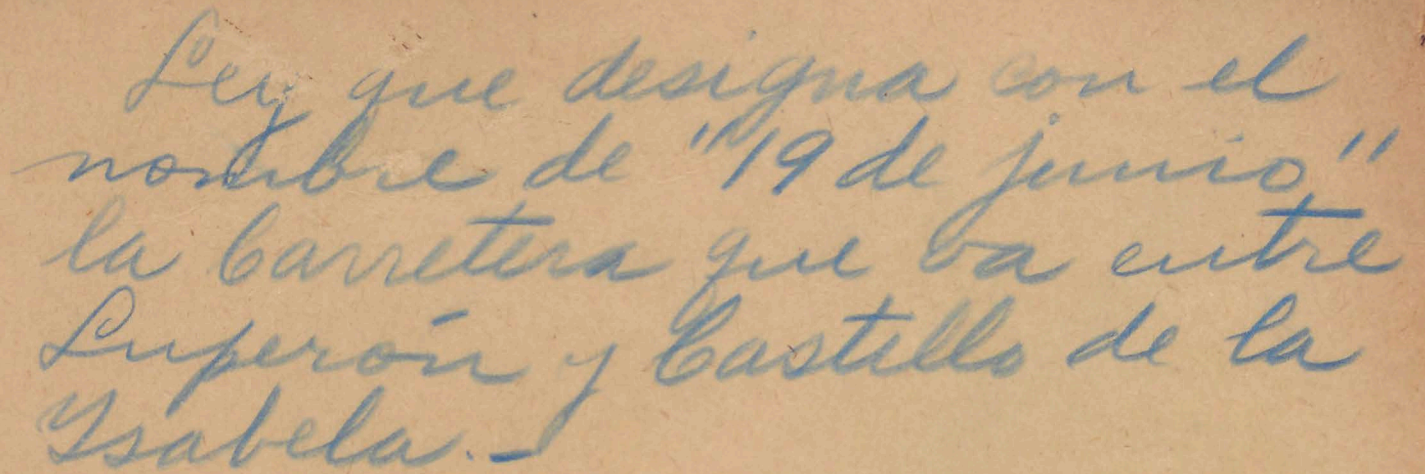 Ley que designa con el
nombre de "19 de junio"
la Carretera que va entre
Luperón y Castillo de la
Ysabela.-